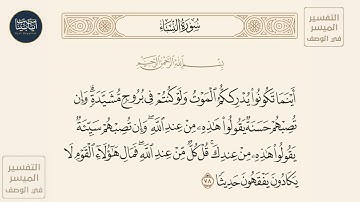 التفسير
الميسر
في الوصف
سُورَةُ النِّسَاءِ
بِسْمِ اللَّهِ الرَّحْمَٰنِ الرَّحِيمِ
أَيْنَمَا تَكُونُوا۟ يُدْرِككُّمُ ٱلْمَوْتُ وَلَوْ كُنتُمْ فِى بُرُوجٍ مُّشَيَّدَةٍ ۗ وَإِن
تُصِبْهُمْ حَسَنَةٌ يَقُولُوا۟ هَٰذِهِۦ مِنْ عِندِ ٱللَّهِ ۖ وَإِن تُصِبْهُمْ سَيِّئَةٌ
يَقُولُوا۟ هَٰذِهِۦ مِنْ عِندِكَ ۚ قُلْ كُلٌّ مِّنْ عِندِ ٱللَّهِ ۖ فَمَالِ هَٰٓؤُلَآءِ ٱلْقَوْمِ لَا
يَكَادُونَ يَفْقَهُونَ حَدِيثًا ٧٨
التفسير
الميسر
في الوصف